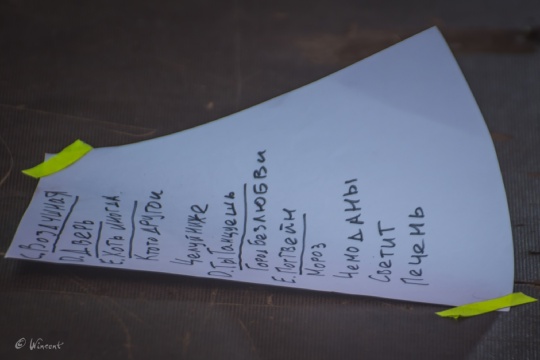 С. Воздушная
D. Дверь
E. Хоть иногда.
Кто то другой
Целуй ниже
D. Ты танцуешь
Город без любви
E. Портвейн
Мороз
Чемоданы
Светит
Печень
© Wincent